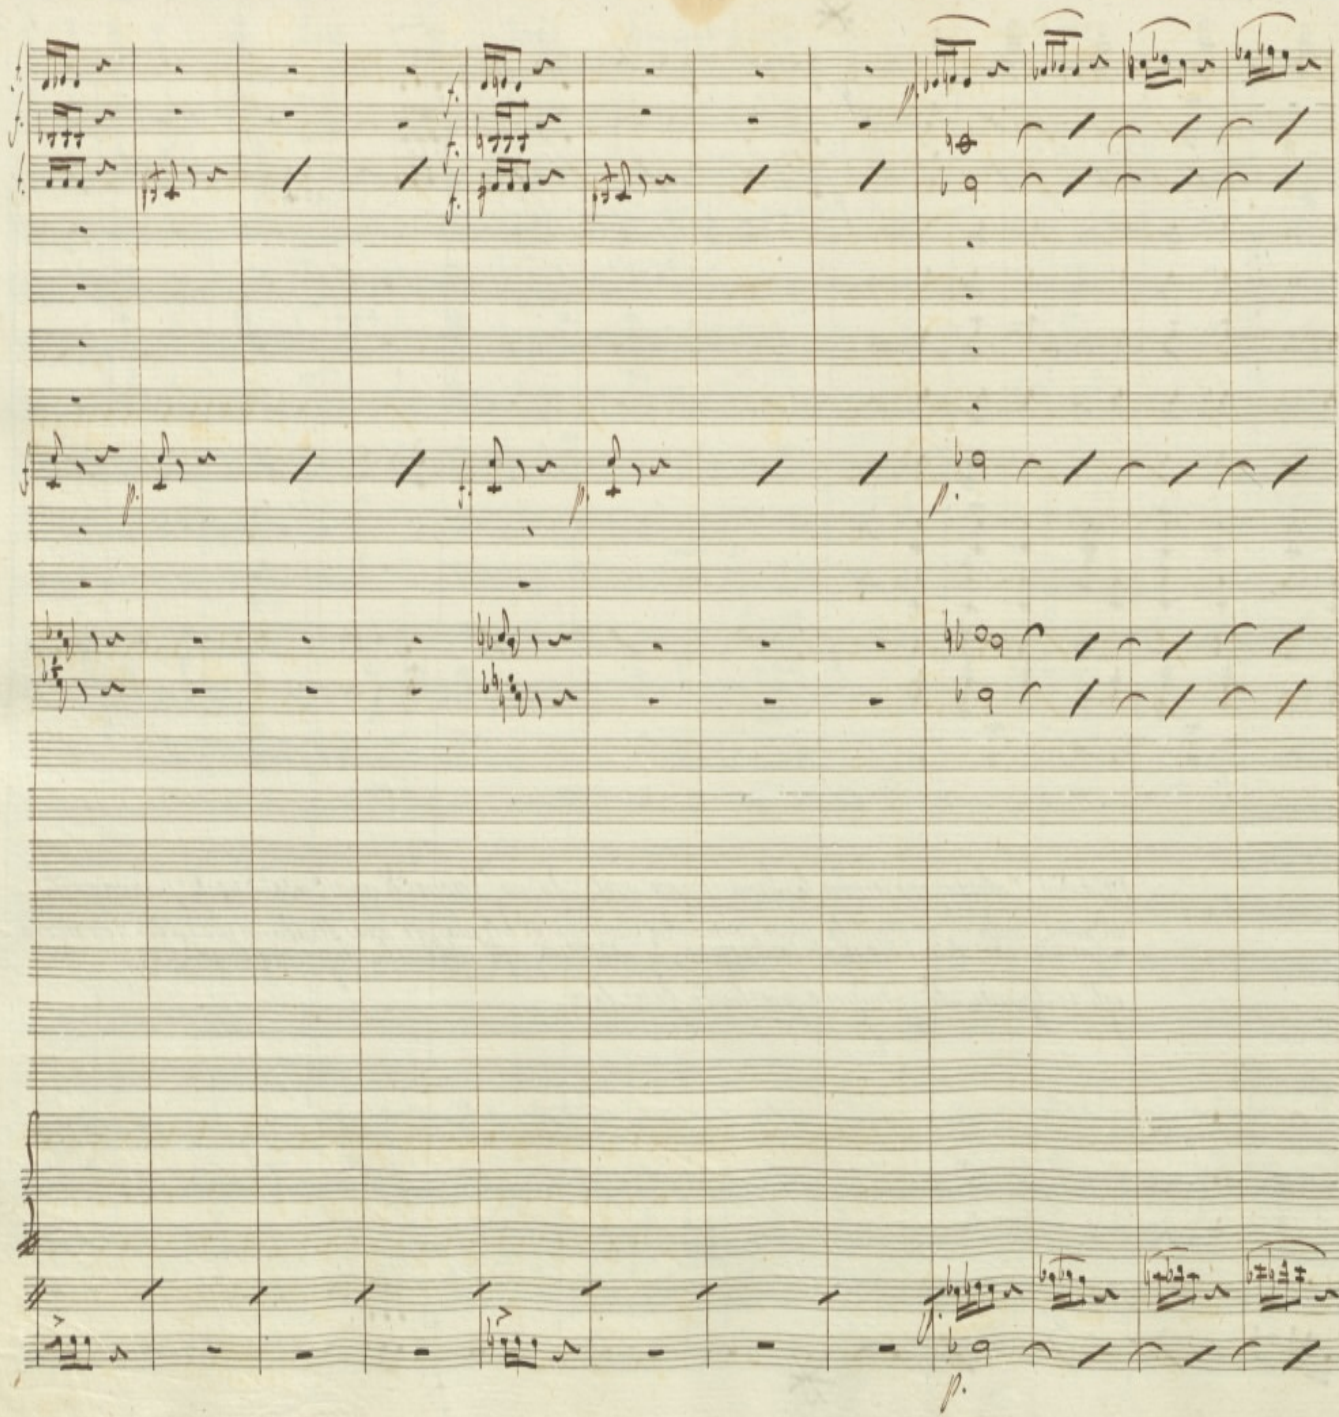 f. f.
f. f.
f. f.
p.
f. p. f. p. p.
p.
p.